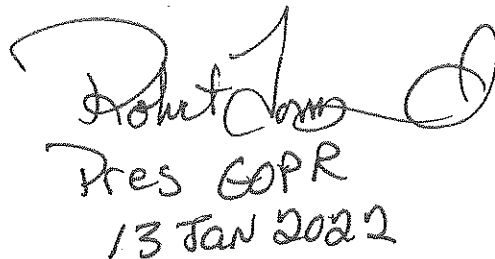 Robert
Pres GOPR
13 JAN 2022